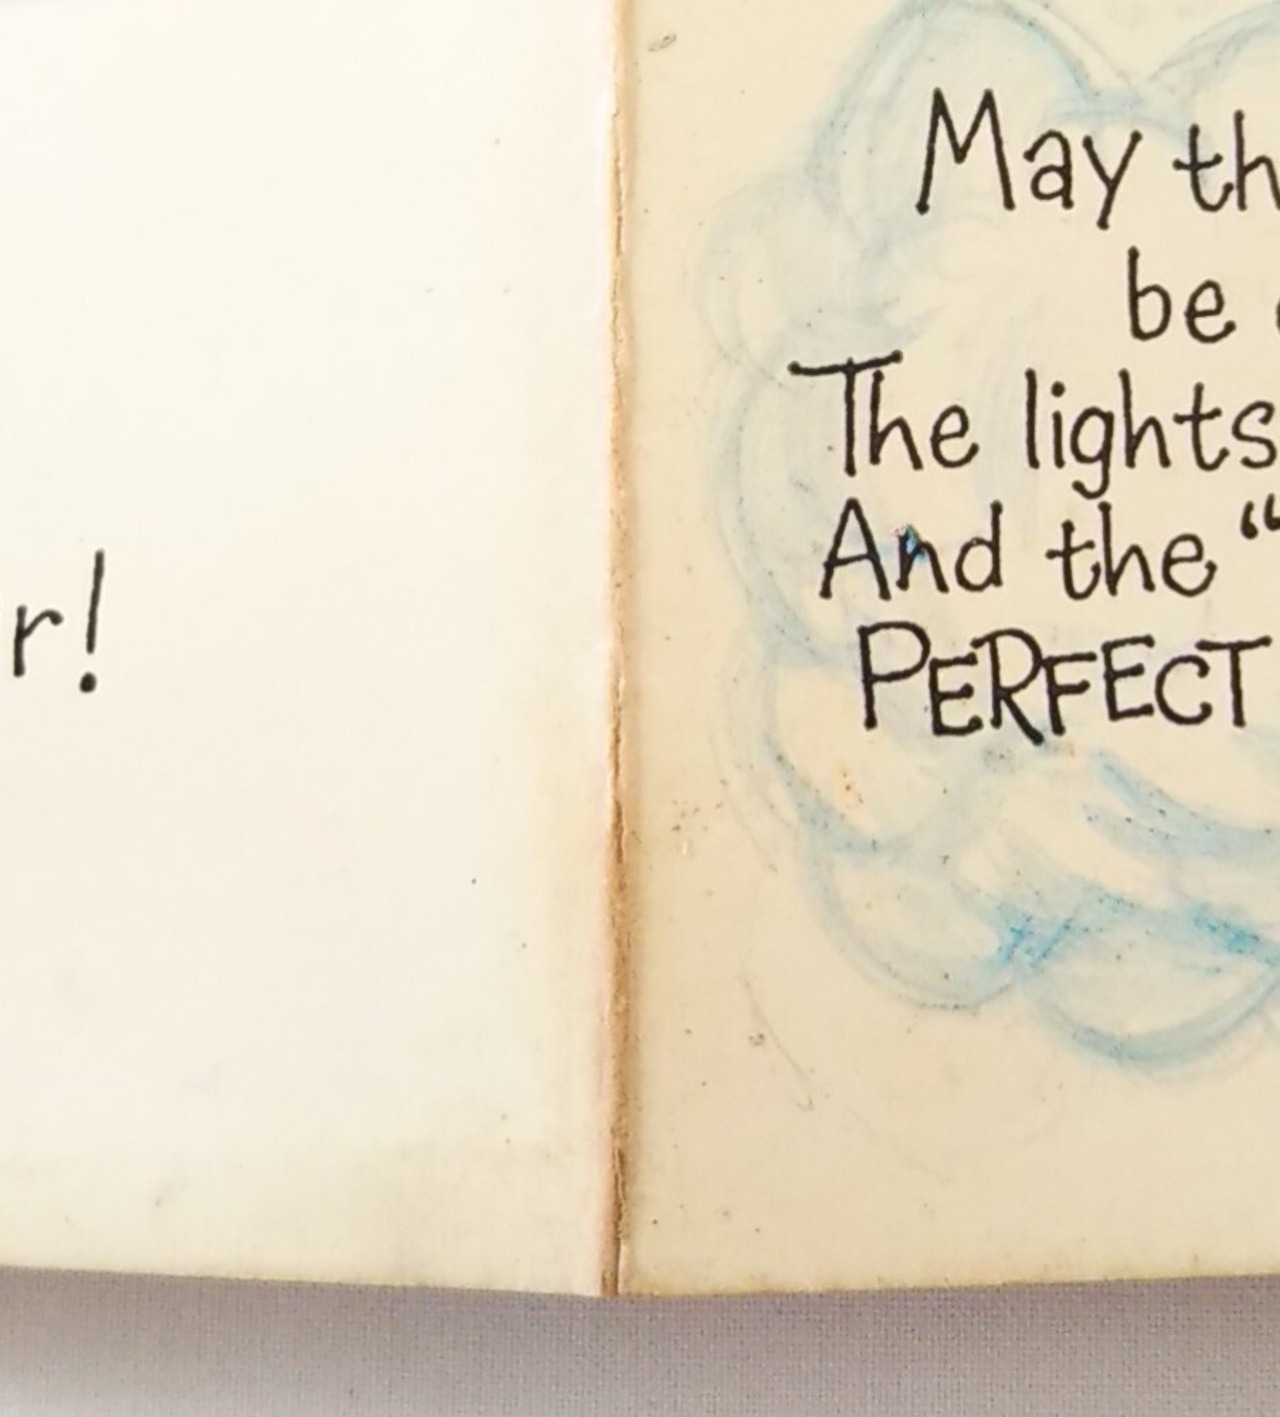 r!
May th
be
The lights
And the "
PERFECT